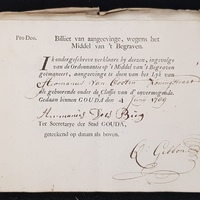 Pro Deo. Billet van aangeevinge, wegens het
Middel van 't Begraven.
Ik ondergeschreve verklaare by deezen, ingevolge
van de Ordonnantie op 't Middel van 't Begraven
geëmaneert, aangeevinge te doen van het Lyk van
Hermanus van
als gehoorende onder de Classis van d' onvermogende.
Gedaan binnen GOUDA den 4 1799
Hermanus
Ter Secretarye der Stad GOUDA,
geteekend op datum als boven.